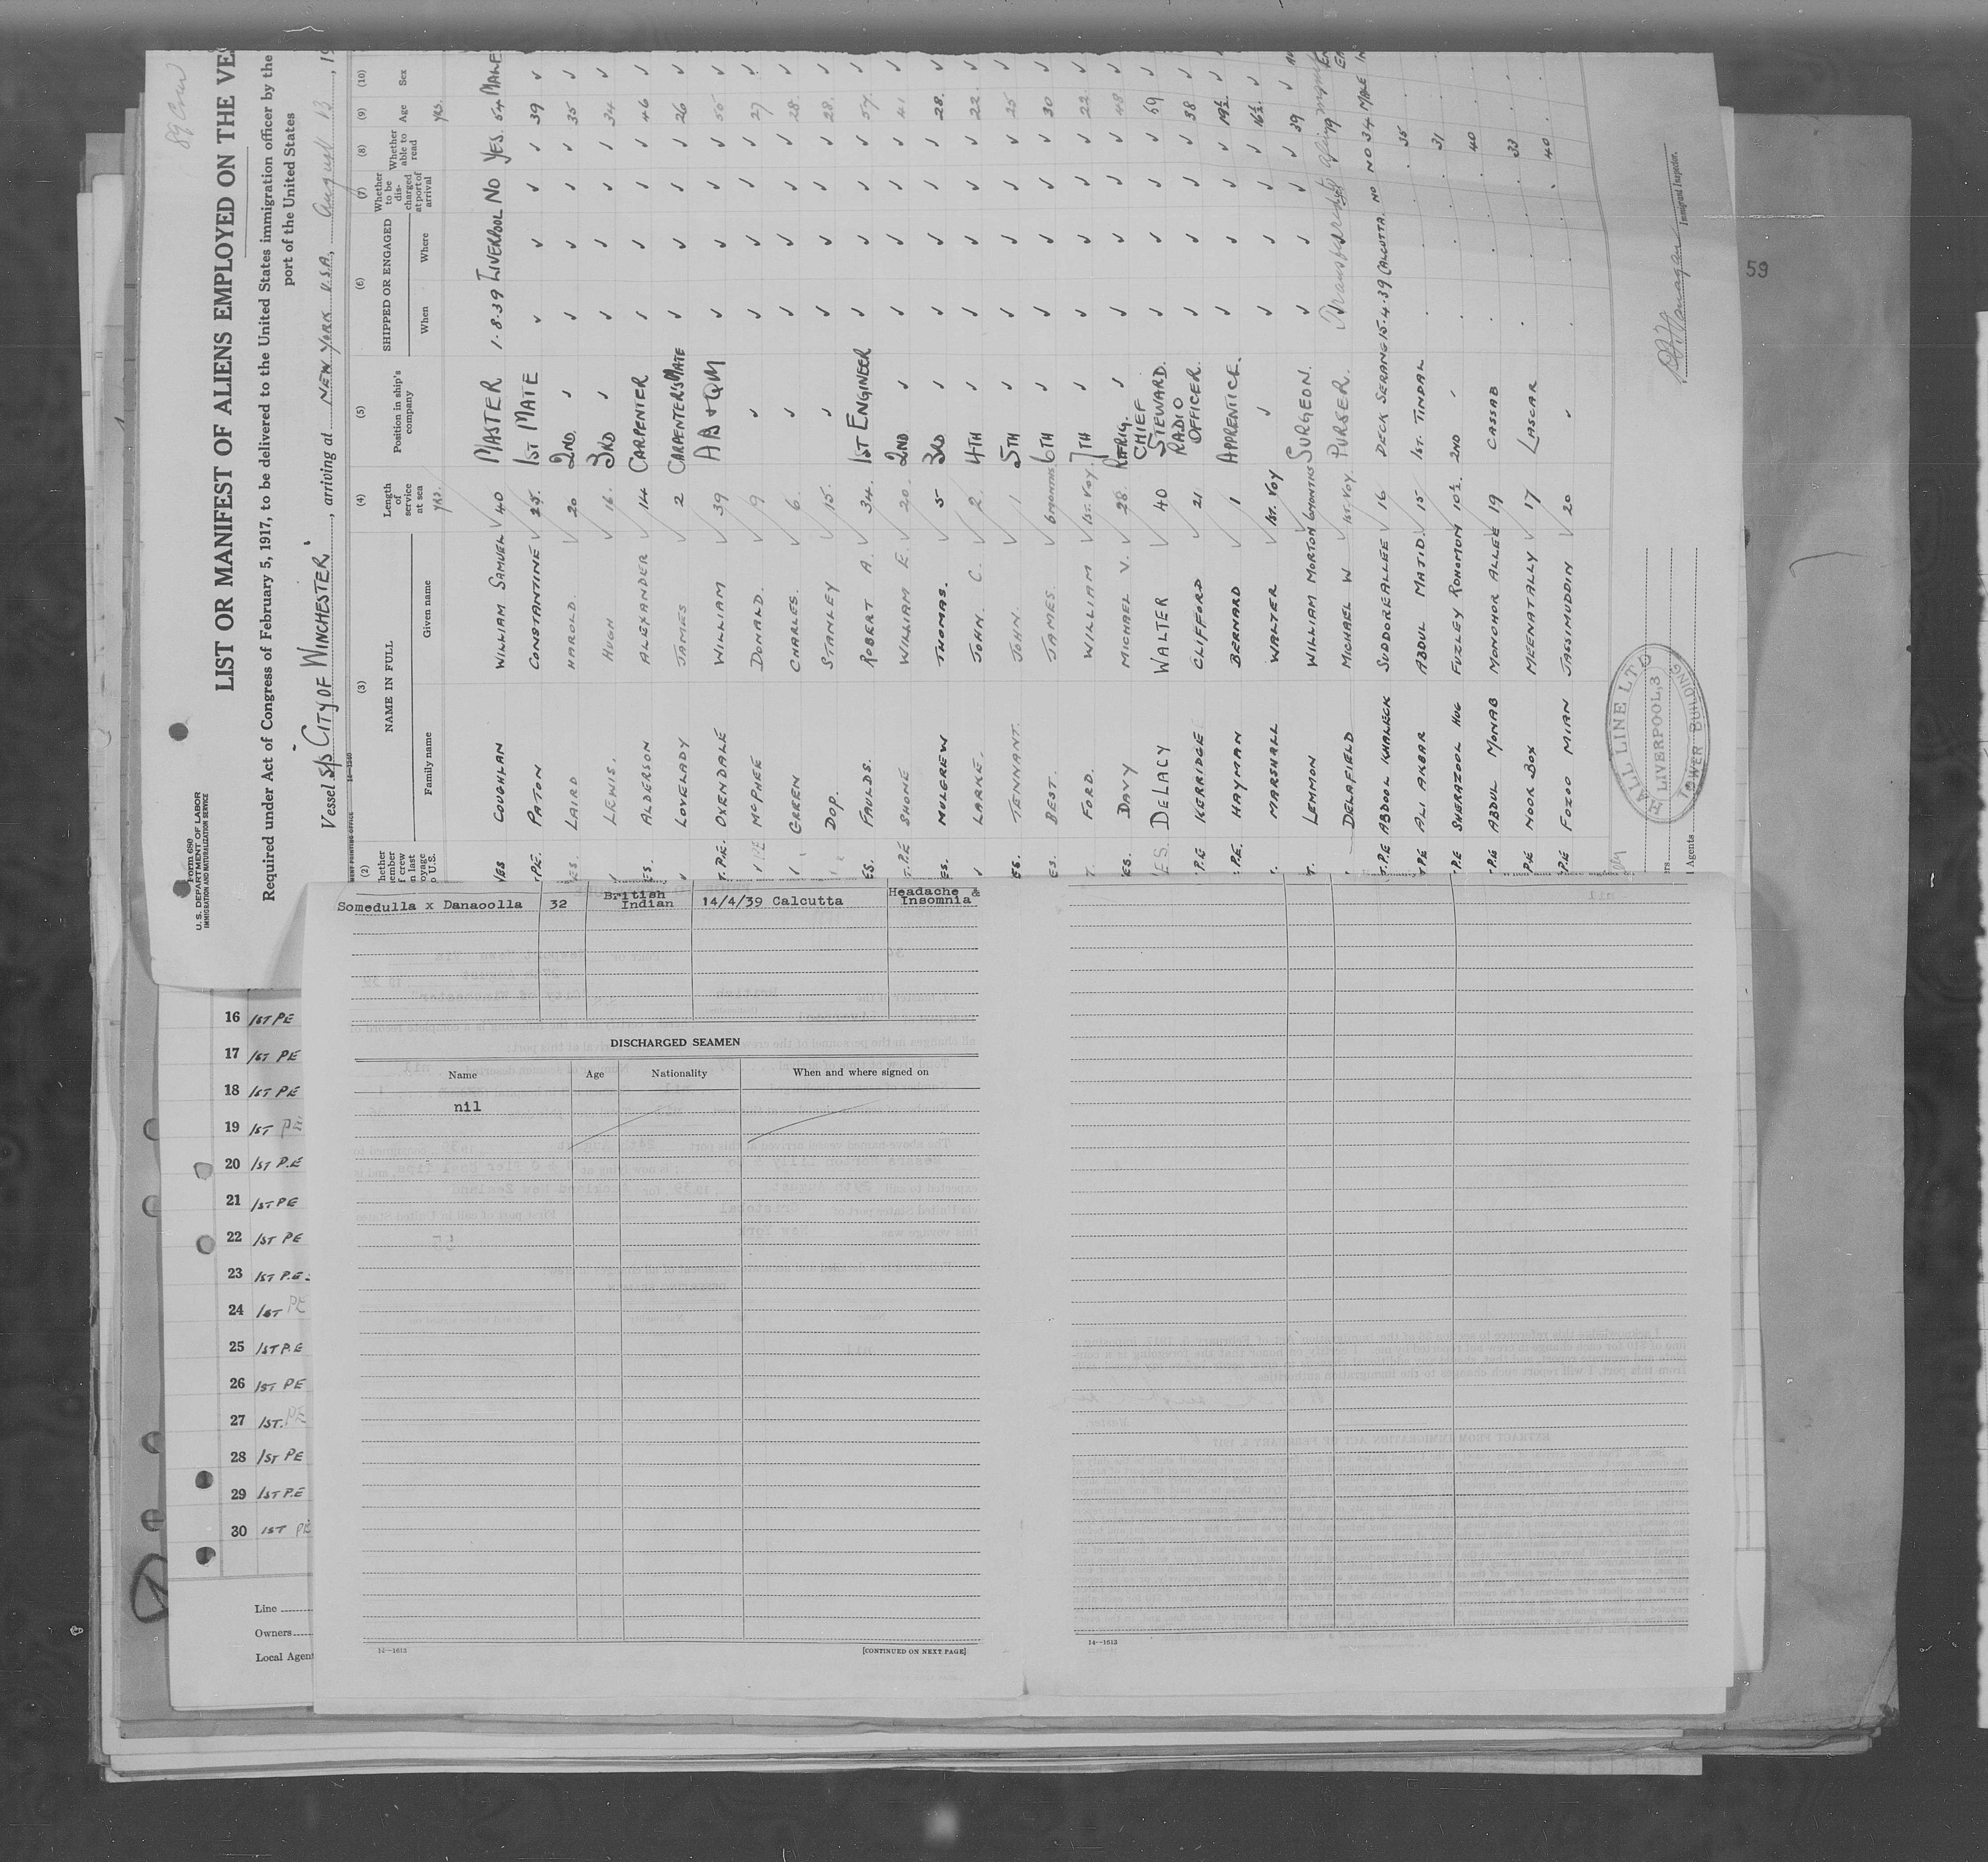 89 Crew
Form 680
U. S. DEPARTMENT OF LABOR
IMMIGRATION AND NATURALIZATION SERVICE
LIST OR MANIFEST OF ALIENS EMPLOYED ON THE VE
Required under Act of Congress of February 5, 1917, to be delivered to the United States immigration officer by the
port of the United States
Vessel S/S "CITY OF WINCHESTER", arriving at NEW YORK U.S.A., August 13, 19
(2) (3) (4) (5) (6) (7) (8) (9) (10)
NAME IN FULL
Family name Given name
Length of service at sea
Position in ship's company
SHIPPED OR ENGAGED
When Where
Whether to be discharged at port of arrival
Whether able to read
Age
Sex
YRS. YRS.
YES COUGHLAN WILLIAM SAMUEL ✓ 40 MASTER 1.8.39 LIVERPOOL NO YES. 54 MALE
T.P.E. PATON CONSTANTINE ✓ 25. 1ST MATE ✓ ✓ ✓ ✓ 39 ✓
ES. LAIRD HAROLD. ✓ 20 2ND. ✓ ✓ ✓ ✓ ✓ 35 ✓
✓ LEWIS. HUGH ✓ 16. 3RD ✓ ✓ ✓ ✓ ✓ 34 ✓
ES. ALDERSON ALEXANDER ✓ 14 CARPENTER ✓ ✓ ✓ ✓ 46 ✓
✓ LOVELADY JAMES ✓ 2 CARPENTER'S MATE ✓ ✓ ✓ ✓ 26 ✓
T.P.E. OXENDALE WILLIAM ✓ 39 AB & QM ✓ ✓ ✓ ✓ 55 ✓
McPHEE DONALD. ✓ 9 ✓ ✓ ✓ ✓ ✓ 27 ✓
GREEN CHARLES. ✓ 6. ✓ ✓ ✓ ✓ ✓ 28. ✓
DOP. STANLEY ✓ 15. ✓ ✓ ✓ ✓ ✓ 28. ✓
ES. FAULDS. ROBERT A. ✓ 34. 1ST ENGINEER ✓ ✓ ✓ ✓ 57. ✓
T.P.E SHONE WILLIAM E. ✓ 20. 2ND ✓ ✓ ✓ ✓ ✓ 41 ✓
ES. MULGREW THOMAS. ✓ 5 3RD ✓ ✓ ✓ ✓ ✓ 28. ✓
✓ LARKE. JOHN C. ✓ 2. 4TH ✓ ✓ ✓ ✓ ✓ 22. ✓
ES. TENNANT. JOHN. ✓ 1 5TH ✓ ✓ ✓ ✓ ✓ 25 ✓
ES. BEST. JAMES. ✓ 6 MONTHS 6TH ✓ ✓ ✓ ✓ ✓ 30 ✓
T. FORD. WILLIAM ✓ 1ST. VOY. 7TH ✓ ✓ ✓ ✓ ✓ 22. ✓
ES. DAVY MICHAEL V. ✓ 28. REFRIG. ✓ ✓ ✓ ✓ ✓ 48 ✓
ES. DELACY WALTER ✓ 40 CHIEF STEWARD. ✓ ✓ ✓ ✓ 69 ✓
P.E KERRIDGE CLIFFORD ✓ 21 RADIO OFFICER. ✓ ✓ ✓ ✓ 38 ✓
P.E. HAYMAN BERNARD ✓ 1 APPRENTICE. ✓ ✓ ✓ ✓ 19½ ✓
MARSHALL WALTER ✓ 1ST. VOY ✓ ✓ ✓ ✓ ✓ 16½. ✓
T. LEMMON WILLIAM MORTON 6 MONTHS SURGEON. ✓ ✓ ✓ ✓ 39 ✓
DELAFIELD MICHAEL W ✓ 1ST. VOY. PURSER. 19
T.P.E ABDOOL KHALECK SUDDOREALLEE ✓ 16 DECK SERANG 15.4.39 CALCUTTA. NO NO 34 MALE
T.P.E ALI AKBAR ABDUL MAJID. ✓ 15 1ST. TINDAL 35
T.P.E SHERAZOOL HUG FUZLEY ROHOMON 10½ 2ND 31
P.E ABDUL MONAB MONOHOR ALLEE 19 CASSAB 40
P.E NOOR BOX MEENATALLY ✓ 17 LASCAR 33
P.E FOZOO MIAN JASSIMUDDIN ✓ 20 ✓ 40
Immigrant Inspector.
ALL LINE LT
LIVERPOOL, 3
TOWER BUILDING
Agents
59
Somedulla x Danaoolla 32 British Indian 14/4/39 Calcutta Headache & Insomnia
DISCHARGED SEAMEN
Name Age Nationality When and where signed on
nil
14—1613
[CONTINUED ON NEXT PAGE]
14—1613
16 1ST PE
17 1ST PE
18 1ST PE
19 1ST PE
20 1ST P.E
21 1ST PE
22 1ST PE
23 1ST P.E.
24 1ST PE
25 1ST P.E
26 1ST PE
27 1ST. PE
28 1ST PE
29 1ST P.E
30 1ST PE
Line
Owners
Local Agent